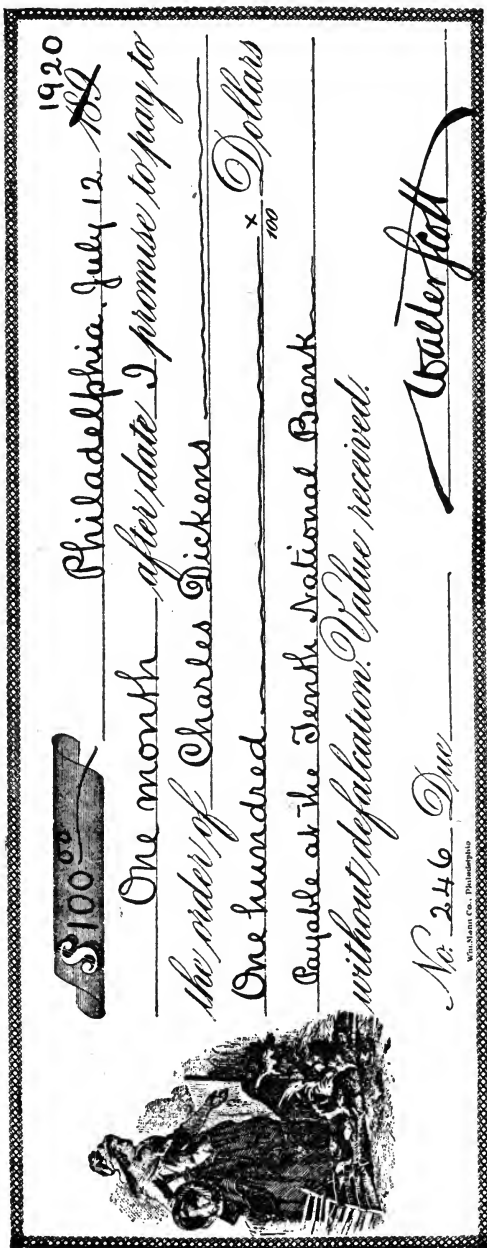 $100 00 Philadelphia, July 12 189 1920
One month after date I promise to pay to
the order of Charles Dickens
One hundred x/100 Dollars
Payable at the Tenth National Bank
without defalcation. Value received.
No. 246 Due Walter Scott
Wm. Mann Co., Philadelphia